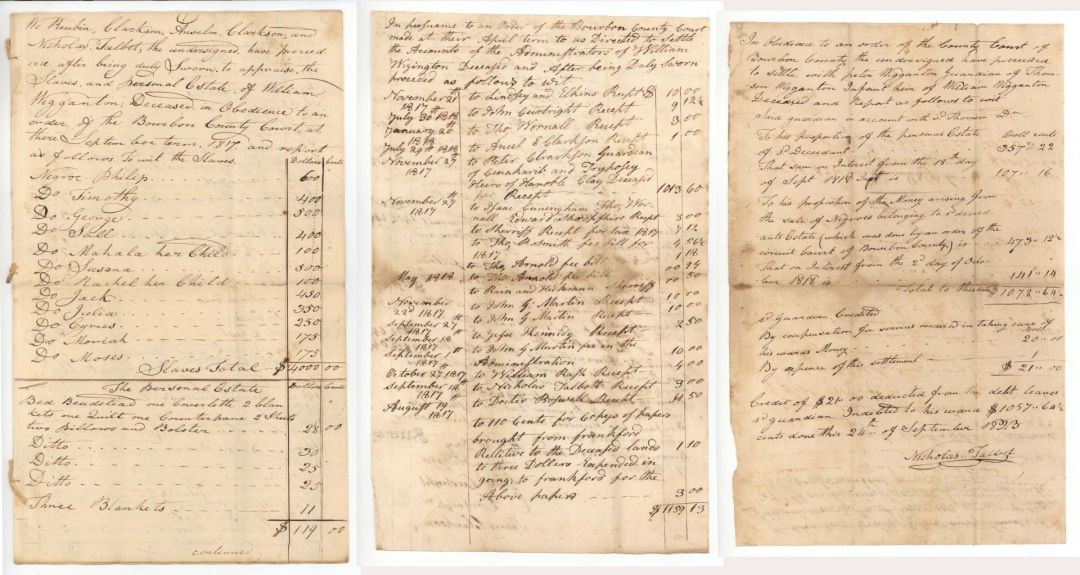 We Reubin, Clarkson, Anselm, Clarkson, and
Nicholas, Talbot, the undersigned, have proceed
ed after being duly Sworn, to appraise, the
Slaves, and Personal Estate, of William
Wigganton, Deceased, in Obedience to an
order of the Bourbon County Court, at
there September term, 1817 and report
as follows To wit the Slaves. Dollars Cents
Negroe Philip 600
Do Timothy 400
Do George 500
Do Sall 400
Do Mahala her Child 100
Do Susana 500
Do Rachel her Child 100
Do Jack 450
Do Julia 350
Do Cyrus 250
Do Moriah 175
Do Moses 175
Slaves Total $4000 00
The Personal Estate Dollars Cents
Bed Beadstead one Coverlette 2 blan
kets one Quilt one Counterpane 2 Sheets
two Pillows and Bolster 28 00
Ditto 30
Ditto 25
Ditto 25
Three Blankets 11
$ 119 00
continued
In persuance to an Order of the Bourbon County Court
made at their April term to as Directed to Settle
the Accounts of the Administrators of William
Wigington Deceased and After being Duly Sworn
proceed as follows to wit
November 21st 1817 to Lindsey and Elkins Recept $ 10 00
July 30 1818 to John Curtright Recept 9 12½
January 20 1818 to Tho, Wornall Recept 3 00
July 29th 1818 to Ancel E Clarkson Recept 1 00
November 27 1817 to Peter Clarkson Guardian
of and Tryphosey
Heirs of Clay Deceased
per Recept 1013 60
November 27th 1817 to Isaac Cuningham Tho, Wor-
nall Edward Recept 3 00
to Sherriff Recept for tax 1817 7 12
to Tho, P. Smith fee bill for 1817 4 56½
to Tho, Arnold fee bill 1 18
to Tho Arnold fee bill
May 1818 to Rain and Hickman Sherriff 50
November 22d 1817 to John G Martin Recept 10 00
September 27 1817 to John G Martin Recept 10 00
September 18 1817 to Jesse Kennedy Recept 2 50
September th 1817 to John G Martin fee in the
Administration 10 00
October 27 1817 to William Recept 4 00
September 14th to Nicholas Talbott Recept 3 00
August 14th 1817 to Doctor Recept 11 50
to 110 Cents for Copeys of papers
brought from frankford
Relitive to the Deceased lands 1 10
to three Dollers Expended in
going to frankford for the
Above papers 3 00
$1159 13
In Obediance to an order of the County Court of
Bourbon County the undersigned have proceeded
to settle with peter Wigganton Guardian of Thom-
son Wigganton Infant heir of William Wigganton
Deceased and Report as follows to wit
Said guardian in account with sd Thomson Dr
To his proportion of the personal Estate Doll cents
of sd Decedant 357" 22
That sum on Interest from the 18th day
of Sept 1818 Inst is 107" 16
To his proportion of the Money arising from
the sale of Negroes belonging to sd deced-
ants Estate (which was done by an order of the
circuit Court of Bourbon County) is 473" 12½
That on Interest from the 2d day of Octo-
ber 1818 is 141" 14
Total to this date $1078" 64½
sd Guardian Credited
By compensation for services rendered in taking care of
his wards Money 20" 00
By expence of this settlement 1
$ 21" 00
Credit of $21" 00 deducted from the debt leaves
sd guardian Indebted to his ward $1057" 64½
cents done this 24th of September 1823
Nicholas Talbot